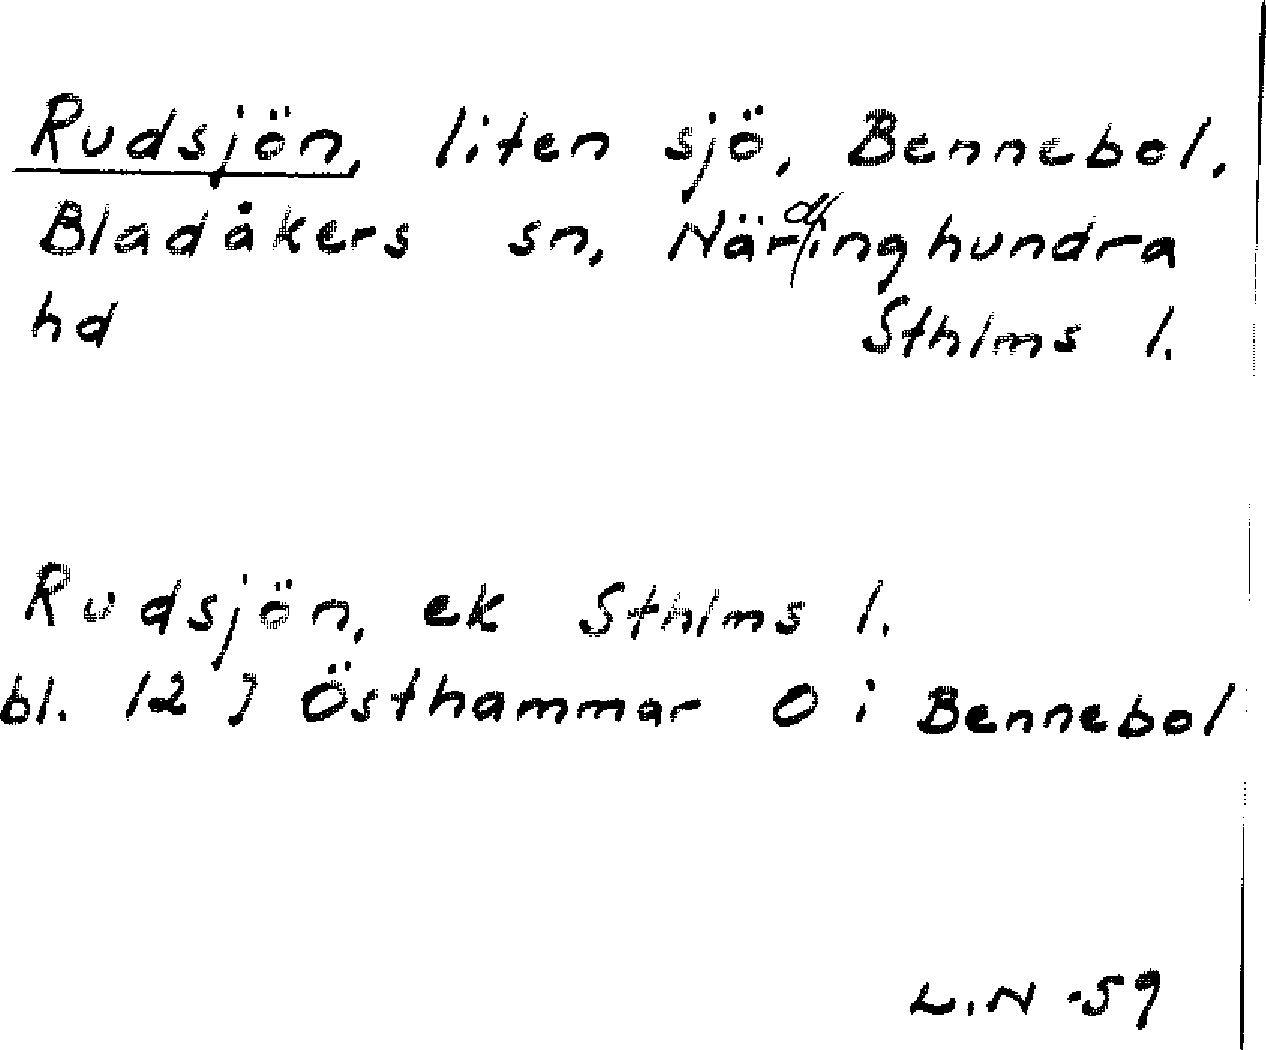 Rudsjön, liten sjö, Bennebol,
Bladåkers sn, Närdinghundra
hd Sthlms l.
Rudsjön, ek Sthlms l.
bl. 12 J Östhammar O i Bennebol
L.N -59